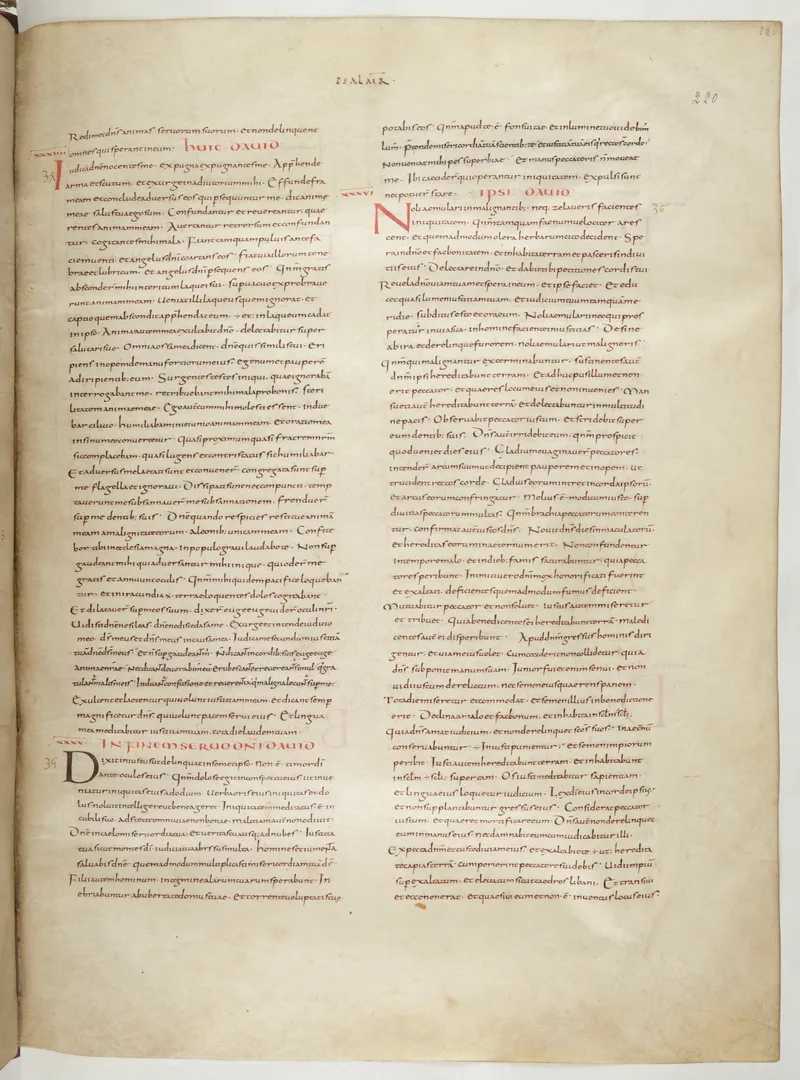 PSALM̄
220
Redimet dn̄s animas seruorum suorum · et non delinquent
omnes qui sperant in eum · HUIC DAUID
XXXIIII
Iudica dn̄e nocentes me · expugna expugnantes me · Apprehende
arma et scutum · et exurge in adiutorium mihi · Effunde fra
meam et conclude aduersus eos qui persequuntur me · dic anime
meae salus tua ego sum · Confundantur et reuereantur quae
rentes animam meam · Auertantur retrorsum et confundan
tur · cogitantes mihi mala · Fiant tamquam puluis ante fa
ciem uenti · et angelus dn̄i coartans eos · fiat uia illorum tene
brae et lubricum · et angelus dn̄i persequens eos · Qn̄m gratis
absconderunt mihi interitum laquei sui · superuacue exprobraue
runt animam meam · Ueniat illi laqueus quem ignorat · et
captio quam abscondit apprehendat eum · et in laqueum cadat
in ipso · Anima autem mea exultabit in dn̄o · delectabitur super
salutari suo · Omnia ossa mea dicent · dn̄e quis similis tui · Eri
piens inopem de manu fortiorum eius · egenum et pauperē
a diripientib; eum · Surgentes testes iniqui · quae ignorabā
interrogabant me · retribuebant mihi mala pro bonis · steri
litatem animae meae · Ego autem cum mihi molesti essent · indue
bar cilicio · humiliabam in ieiunio animam meam · et oratio mea
in sinu meo conuertetur · Quasi proximum quasi fratrem nr̄m
sic complacebam · quasi lugens et contristatus sic humiliabar ·
Et aduersum me laetati sunt et conuener̄ · congregata sunt sup
me flagella et ignoraui · Dissipati sunt nec compuncti · temp
tauerunt me subsannauer̄ me subsannatione · frenduer̄
sup me dentib; suis · Dn̄e quando respicies restitue animā
meam a malignitate eorum · a leonib; unicam meam · Confite
bor tibi in ecclesia magna · in populo graui laudabo te · Non sup
gaudeant mihi qui aduersantur mihi inique · qui oder̄ me
gratis et annuunt oculis · Qn̄m mihi quidem pacifice loqueban
tur · et in iracundia terrae loquentes dolos cogitabant ·
Et dilatauer̄ sup me os suum · dixer̄ euge euge uider̄ oculi nr̄i ·
Uidisti dn̄e ne sileas · dn̄e ne discedas a me · Exurge et intende iudicio
meo · dŝ meus et dn̄s meus in causam meam · Iudica me secundum iustitiā
tuā dn̄e dŝ meus · et n̄ supgaudeant m̄ · N̄ dicant in cordib; suis euge euge
Exultent et laetentur qui uolunt iustitiam meam · et dicant semp
magnificetur dn̄s · qui uolunt pacem serui eius · Et lingua
mea meditabitur iustitiam tuam · tota die laudem tuam ·
XXXV IN FINEM SERUO DN̄I DAUID
35
Dixit iniustus ut delinquat in semetipso · non ē timor dī
ante oculos eius · Qn̄m dolose egit in conspectu eius · ut inue
niatur iniquitas eius ad odium · Uerba oris eius iniquitas et do
lus · noluit intellegere ut bene ageret · Iniquitatem meditatus ē in
cubili suo · adstetit omni uiae non bonae · malitiam autē non odiuit ·
Dn̄e in caelo misericordia tua · et ueritas tua usq; ad nubes · Iustitia
tua sicut montes dī · iudicia tua abyssus multa · homines et iumenta
saluabis dn̄e · quemadmodum multiplicasti misericordiam tuā dŝ ·
Filii autem hominum · in tegmine alarum tuarum sperabunt · In
ebriabuntur ab ubertate domus tuae · et torrente uoluptatis tuae
potabis eos · Qn̄m apud te ē fons uitae · et in lumine tuo uidebim;
lum̄ · Ptende misericordiā tuā scientib; te · et iustitiā tuā his qui recto s̄ corde ·
Non ueniat mihi pes superbiae · et manus peccatoris n̄ moueat
me · Ibi ceciderunt qui operantur iniquitatem · expulsi sunt
nec potuer̄ stare · IPSI DAUID
XXXVI
36
Noli aemulari in malignantib; · neq; zelaueris facientes
iniquitatem · Qn̄m tamquam faenum uelociter ares
cent · et quemadmodum olera herbarum cito decident · Spe
ra in dn̄o et fac bonitatem · et inhabita terram et pasceris in diui
tiis eius · Delectare in dn̄o · et dabit tibi petitiones cordis tui ·
Reuela dn̄o uiam tuam et spera in eum · et ipse faciet · Et edu
cet quasi lumen iustitiam tuam · et iudicium tuum tamquam me
ridie · subditus esto dn̄o et ora eum · Noli aemulari in eo qui pros
peratur in uia sua · in homine faciente iniustitias · Desine
ab ira et derelinque furorem · noli aemulari ut maligneris ·
Qn̄m qui malignantur exterminabuntur · sustinentes autē
dn̄m ipsi hereditabunt terrā · Et adhuc pusillum et non
erit peccator · et quaeres locum eius et non inuenies · Man
sueti autē hereditabunt terrā · et delectabuntur in multitudi
ne pacis · Obseruabit peccator iustum · et stridebit super
eum dentib; suis · Dn̄s autē irridebit eum · qn̄m prospicit
quod ueniet dies eius · Gladium euaginauer̄ peccatores ·
intender̄ arcum suum ut decipiant pauperem et inopem · ut
trucident rectos corde · Gladius eorum intret in corda ipsorū ·
et arcus eorum confringatur · Melius ē modicum iusto · sup
diuitias peccatorum multas · Qn̄m brachia peccatorum conteren
tur · confirmat autē iustos dn̄s · Nouit dn̄s dies inmaculatorū ·
et hereditas eorum in aeternum erit · Non confundentur
in tempore malo · et in dieb; famis saturabuntur · quia pecca
tores peribunt · Inimici uero dn̄i mox honorificati fuerint
et exaltati · deficientes quemadmodum fumus deficient ·
Mutuabitur peccator et non soluet · iustus autem miseretur
et tribuet · Quia benedicentes ei hereditabunt terrā · maledi
centes autē ei disperibunt · Apud dn̄m gressus hominis diri
gentur · et uiam eius uolet · Cum ceciderit non collidetur · quia
dn̄s subponit manum suam · Iunior fui et enim senui · et non
uidi iustum derelictum · nec semen eius quaerens panem ·
Tota die miseretur et commodat · et semen illius in benedictione
erit · Declina a malo et fac bonum · et inhabita in sc̄lm sc̄li ·
Quia dn̄s amat iudicium · et non derelinquet scōs suos · in aeternū
conseruabuntur · Iniusti punientur · et semen impiorum
peribit · Iusti autem hereditabunt terram · et inhabitabunt
in sc̄lm sc̄li super eam · Os iusti meditabitur sapientiam ·
et lingua eius loquetur iudicium · Lex dī eius in corde ipsius ·
et non supplantabuntur gressus eius · Considerat peccator
iustum · et quaerit mortificare eum · Dn̄s autē non derelinquet
eum in manus eius · nec damnabit eum cum iudicabitur illi ·
Expecta dn̄m et custodi uiam eius · et exaltabit te ut heredita
te capias terrā · cum perierint peccatores uidebis · Uidi impiū
sup exaltatum · et eleuatum sicut cedros libani · Et transiui
et ecce non erat · et quaesiui eum et non ē inuentus locus eius ·